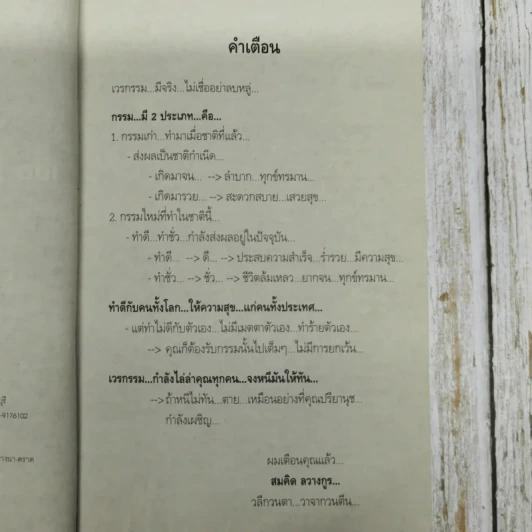 คำเตือน
เวรกรรม...มีจริง...ไม่เชื่ออย่าลบหลู่...
กรรม...มี 2 ประเภท...คือ...
1. กรรมเก่า...ทำมาเมื่อชาติที่แล้ว...
- ส่งผลเป็นชาติกำเนิด...
- เกิดมาจน... --> ลำบาก...ทุกข์ทรมาน...
- เกิดมารวย... --> สะดวกสบาย...เสวยสุข...
2. กรรมใหม่ที่ทำในชาตินี้...
- ทำดี...ทำชั่ว...กำลังส่งผลอยู่ในปัจจุบัน...
- ทำดี... --> ดี... --> ประสบความสำเร็จ...ร่ำรวย...มีความสุข...
- ทำชั่ว... --> ชั่ว... --> ชีวิตล้มเหลว...ยากจน...ทุกข์ทรมาน...
ทำดีกับคนทั้งโลก...ให้ความสุข...แก่คนทั้งประเทศ...
- แต่ทำไม่ดีกับตัวเอง...ไม่มีเมตตาตัวเอง...ทำร้ายตัวเอง...
--> คุณก็ต้องรับกรรมนั้นไปเต็มๆ...ไม่มีการยกเว้น...
เวรกรรม...กำลังไล่ล่าคุณทุกคน...จงหนีมันให้ทัน...
--> ถ้าหนีไม่ทัน...ตาย...เหมือนอย่างที่คุณปรียานุช...
กำลังเผชิญ...
ผมเตือนคุณแล้ว...
สมคิด ลวางกูร...
วลีกวนตา...วาจากวนตีน...
-9176102